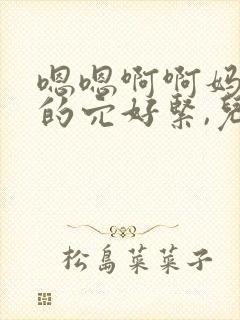 嗯嗯啊啊妈
的穴好紧,儿
松島菜菜子